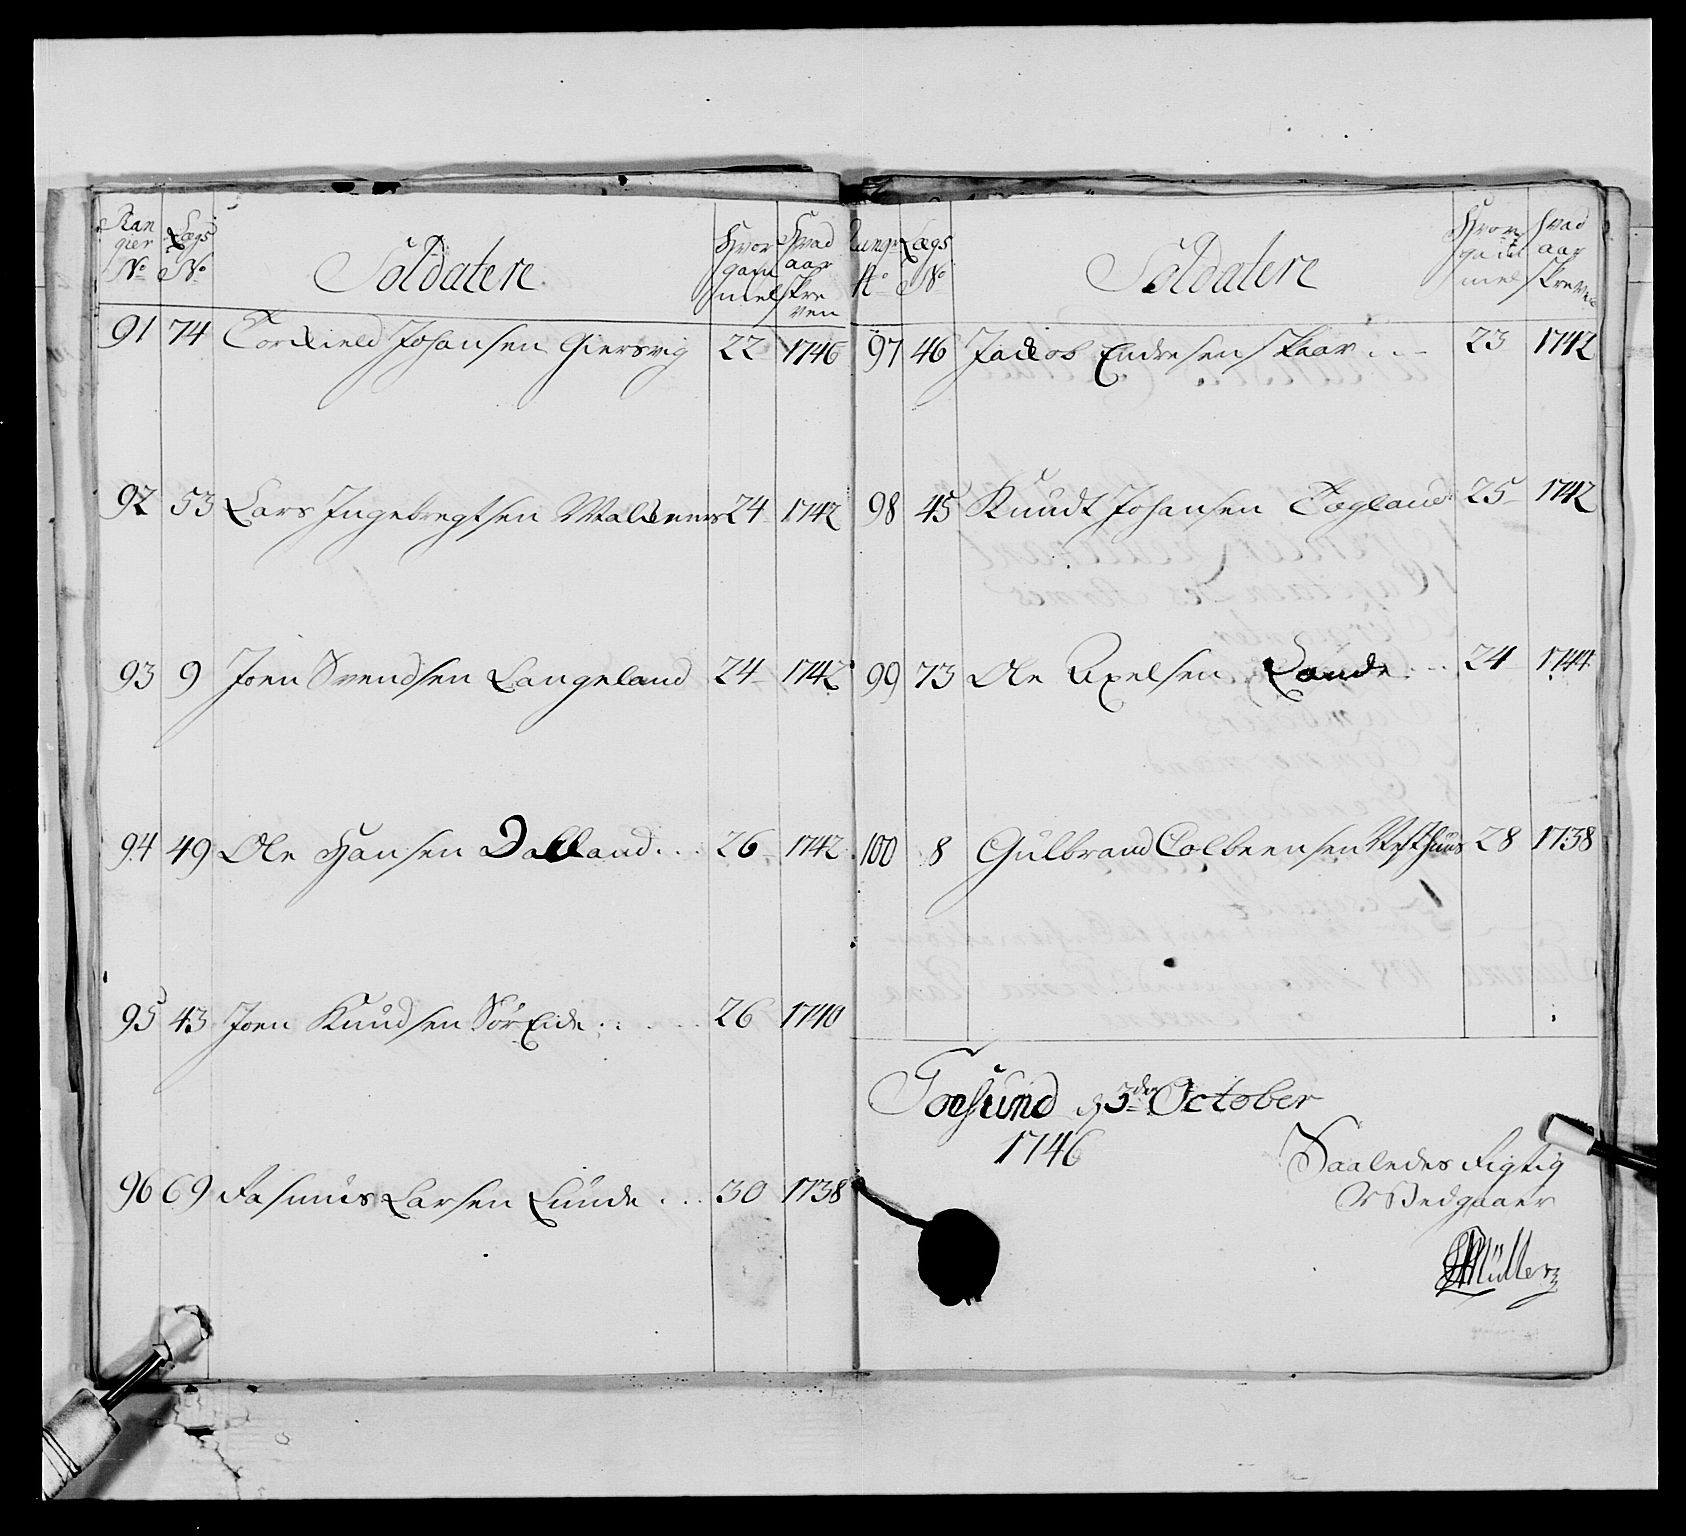 Ran
gier
No
Lægs
No
Soldatere
Hvor
gam
mel
Hvad
aar
skre
ven
91 74 Torkield Johansen Giersvig 22 1746
92 53 Lars Ingebregtsen 24 1742
93 9 Joen Svendsen Langeland 24 1742
94 49 Ole Hansen Dalland 26 1742
95 43 Joen Knudsen Sør Eide 26 1740
96 69 Rasmus Larsen Lunde 30 1738
Rangr
No
Lægs
No
Soldatere
Hvor
gam
mel
Hvad
aar
skreven
97 46 Jackob Endresen Skaar 23 1742
98 45 Knudt Johansen Togland 25 1742
99 73 Ole Axelsen Lande 24 1744
100 8 Gulbrand Colbeensen Vesthuus 28 1738
d 3den October
1746
Saaledes Rigtig
Vedgaaer
Müller